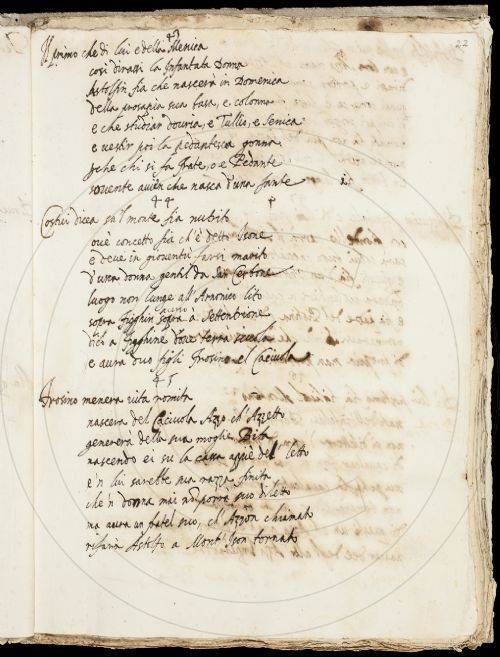 22
43
Il primo che di lui e della Menica
così dirassi la Infantata Donna
Astolfin fia che nascerà in Domenica
della prosapia sua basa, e colonna
e che studiar douria, e Tullio, e Senica
e uestir poi la pedantesca gonna
che chi si fa frate, o e Pedante
souente auien che nasca d'una fante
44
Costui dicea sul monte fia nutrito
ou'è concetto fia ch'è detto Isone
e deue in giouentù farsi marito
d'una donna gentil da San Cerbone
luogo non lunge all'Arnonico lito
sopra Figghin sopra à Setentrione
e aura duo figli Frosino el Caciuola
45
Frosino menerà uita romita
nascerà del Caciuola Azzo ch'Azzetto
genererà della sua moglie Bita
nascendo ei su la cassa appiè del letto
e'n lui sarebbe sua razza finita
che'n donna mai non porrà suo diletto
ma aura un fratel suo, ch'Azzon chiamato
rifarà Astolfo a Mont'Ison tornato